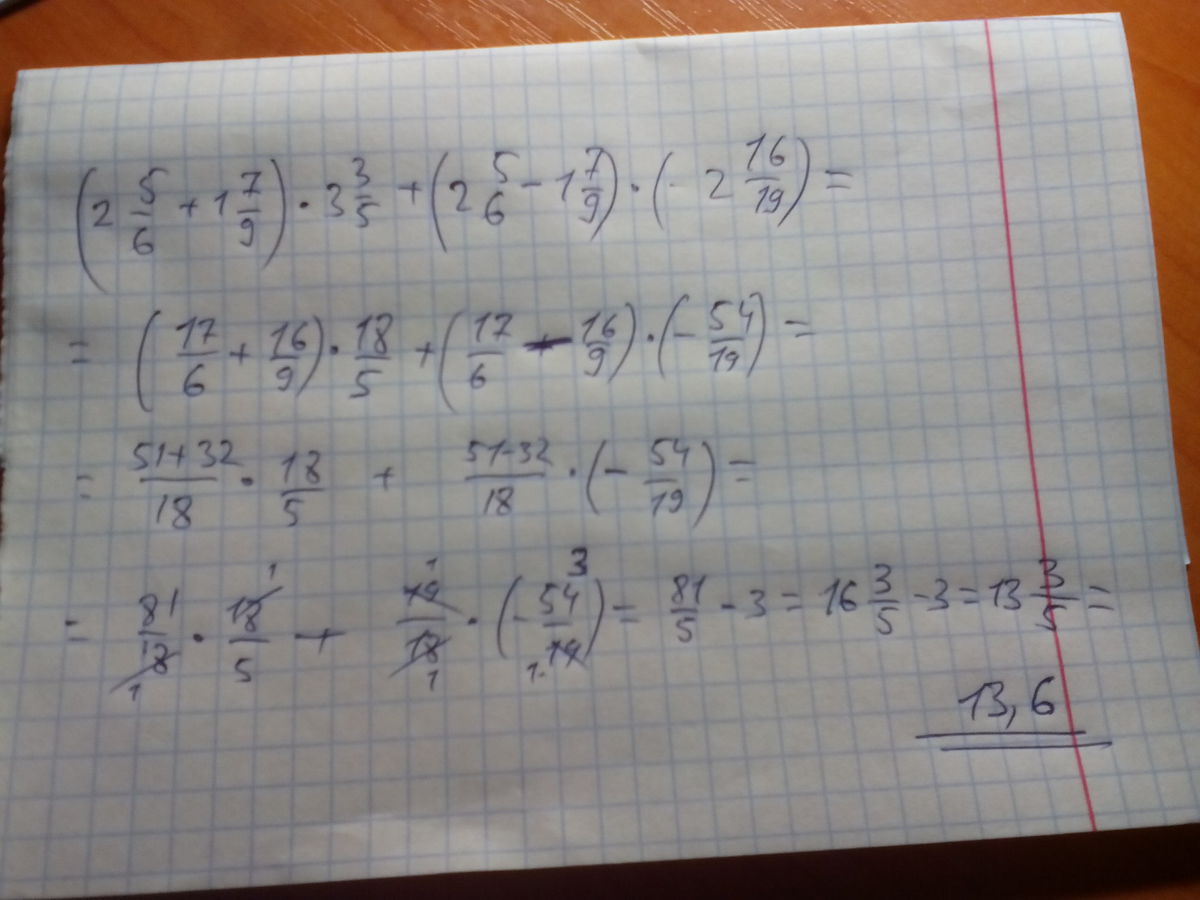 (2 5/6 + 1 7/9) · 3 3/5 + (2 5/6 - 1 7/9) · (- 2 16/19) =
= (17/6 + 16/9) · 18/5 + (17/6 - 16/9) · (- 54/19) =
= 51+32/18 · 18/5 + 51-32/18 · (- 54/19) =
= 81/18 · 18/5 + 19/18 · (- 54/19) = 81/5 - 3 = 16 3/5 - 3 = 13 3/5 =
13,6